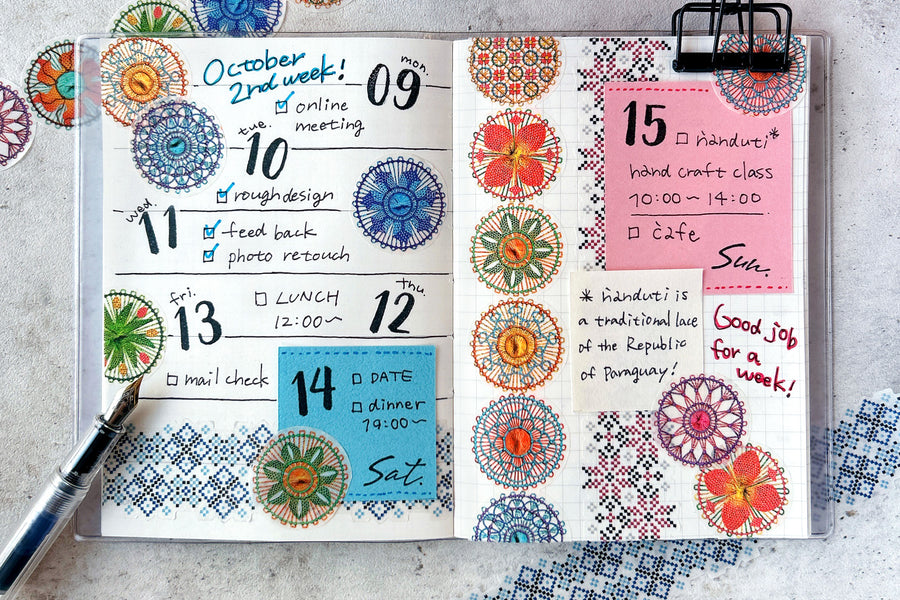 October
2nd week!
mon.
09
☑ online
meeting
tue.
10
☑ rough design
wed.
11
☑ feed back
☑ photo retouch
thu.
12
☐ LUNCH
12:00~
fri.
13
☐ mail check
14
☐ DATE
☐ dinner
19:00~
Sat.
15
☐ ñanduti*
hand craft class
10:00~14:00
☐ cafe
Sun.
* ñanduti is
a traditional lace
of the Republic
of Paraguay!
Good job
for a
week!